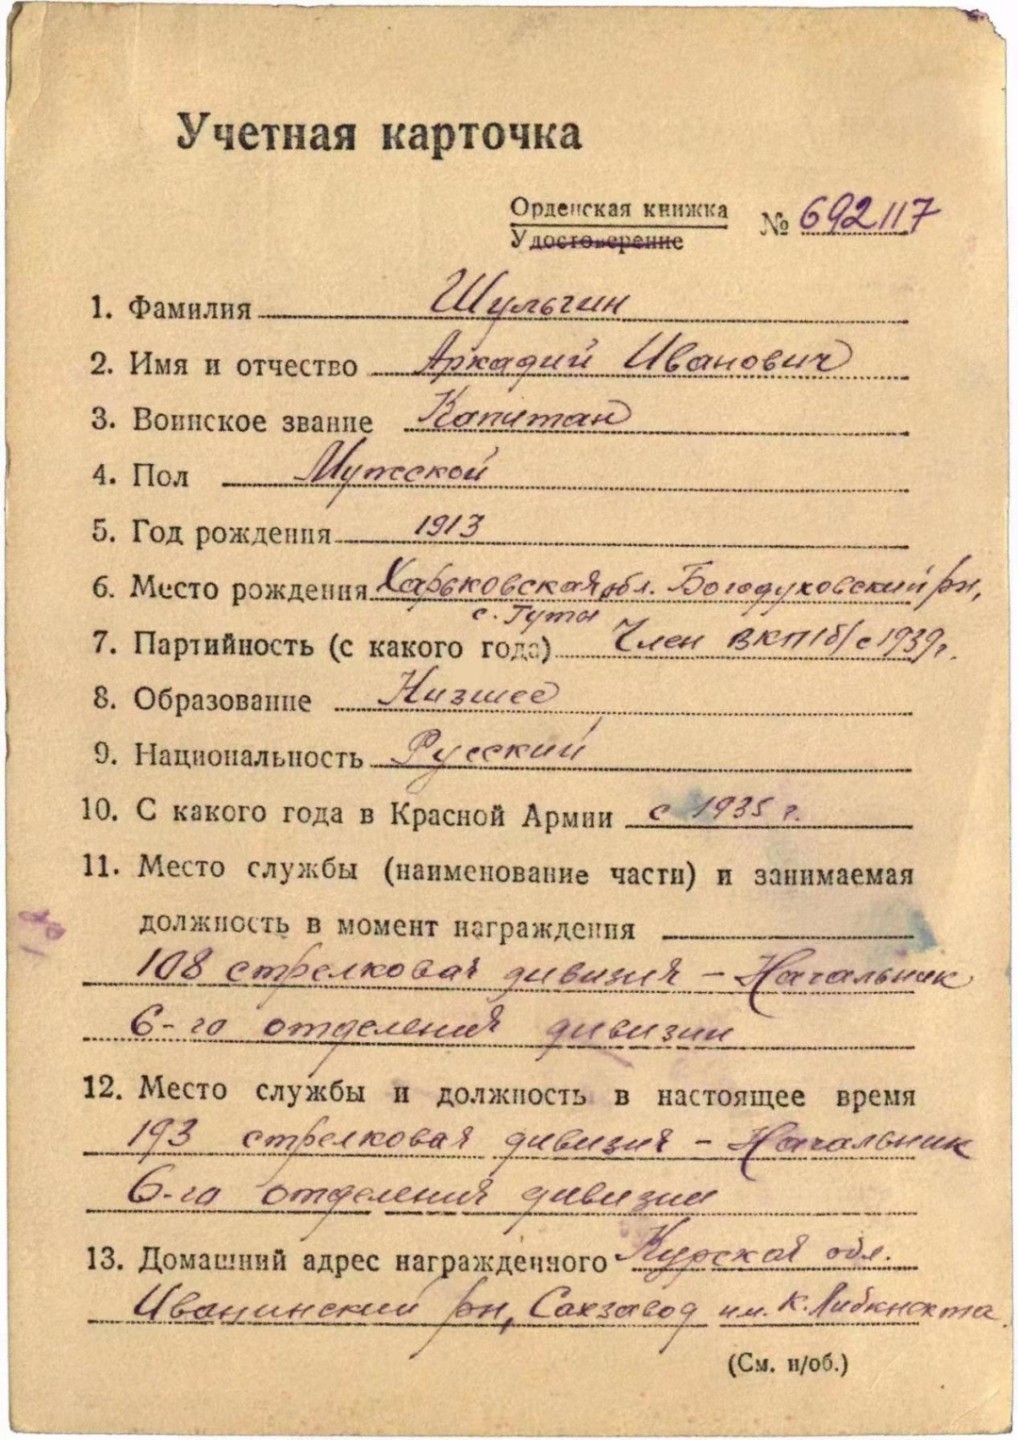 Учетная карточка
Орденская книжка
Удостоверение
№ 692117
1. Фамилия Шульгин
2. Имя и отчество Аркадий Иванович
3. Воинское звание Капитан
4. Пол Мужской
5. Год рождения 1913
6. Место рождения Харьковская обл. Богодуховский рн,
с. Гуты
7. Партийность (с какого года) Член ВКП/б/ с 1939г.
8. Образование Низшее
9. Национальность Русский
10. С какого года в Красной Армии с 1935 г.
11. Место службы (наименование части) и занимаемая
должность в момент награждения
108 стрелковая дивизия – Начальник
6-го отделения дивизии
12. Место службы и должность в настоящее время
193 стрелковая дивизия – Начальник
6-го отделения дивизии
13. Домашний адрес награждённого Курская обл.
Иванинский рн, Сахзавод им. К. Либкнехта
(См. н/об.)